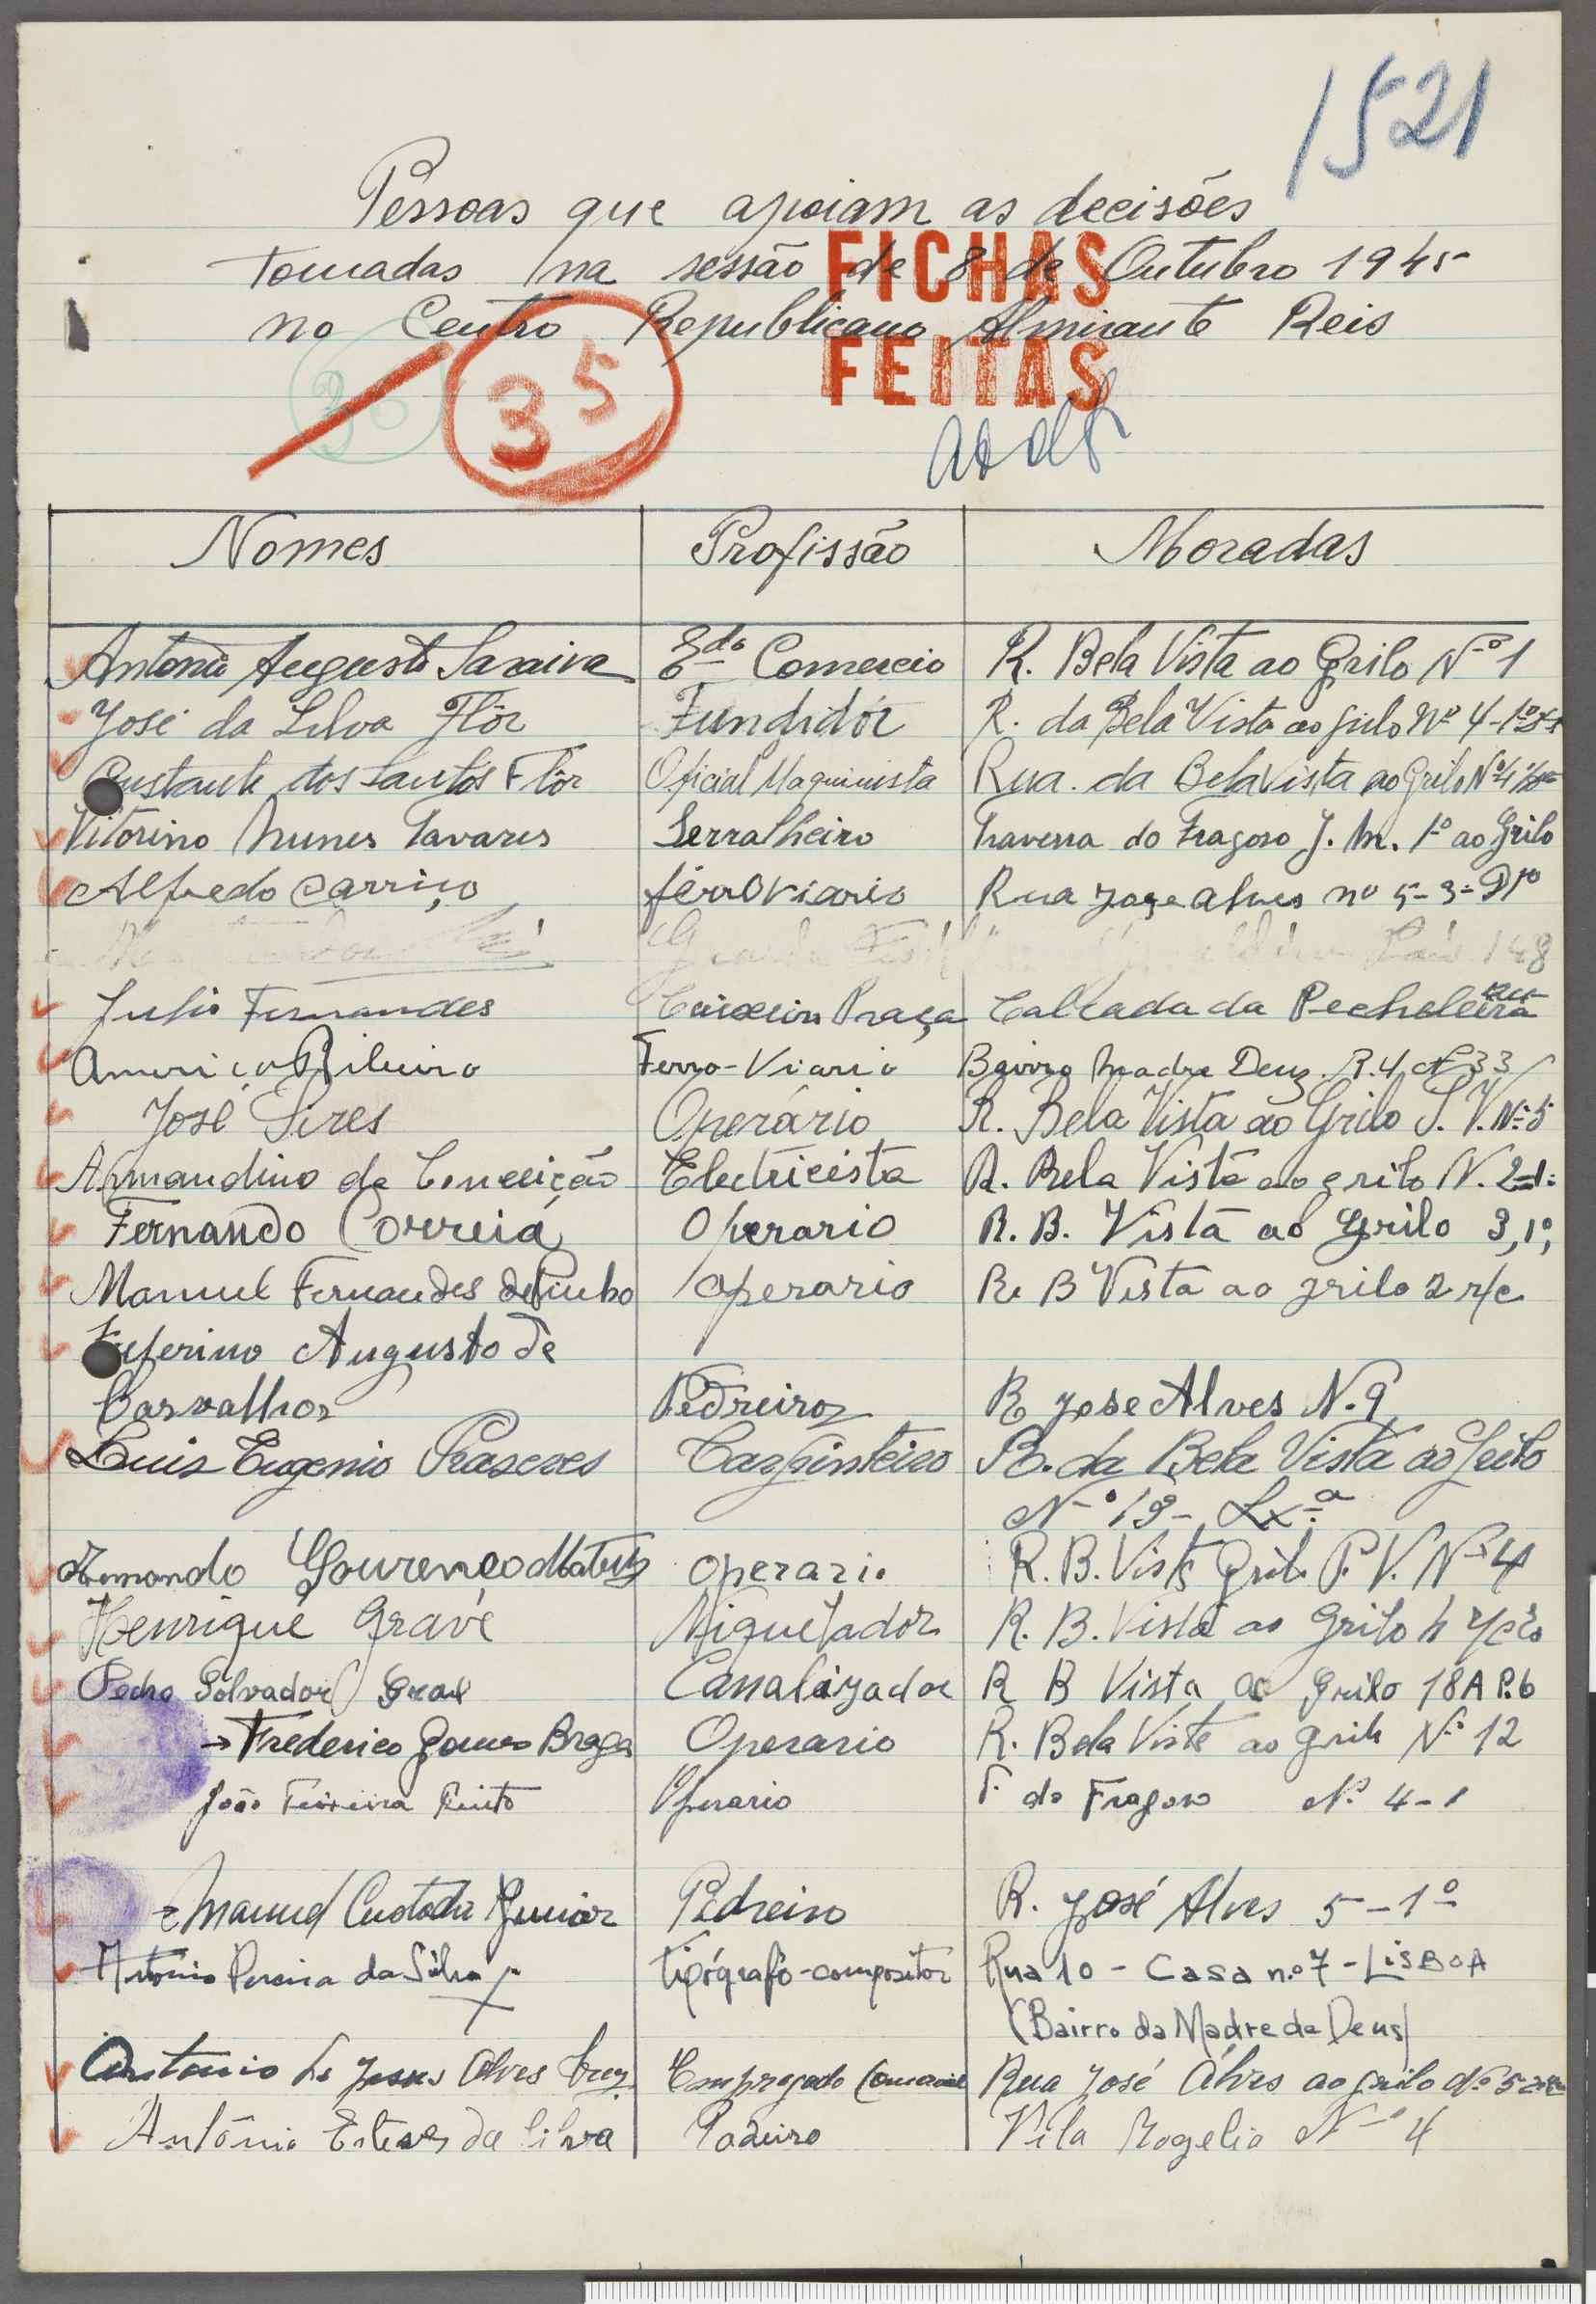 1521
Pessoas que apoiam as decisões
tomadas na sessão de 8 de Outubro 1945
no Centro Republicano Almirante Reis
FICHAS
FEITAS
35
Nomes Profissão Moradas
Antonio Augusto Saraiva Edo Comercio R. Bela Vista ao Grilo Nº 1
José da Silva Flôr Fundidôr R. da Bela Vista ao Grilo Nº 4-1º
dos Santos Flôr Oficial Maquinista Rua da Bela Vista ao Grilo Nº 4
Vitorino Nunes Tavares Serralheiro Travessa do Fragoso J. M. 1º ao Grilo
Alfredo Carriço ferroviario Rua Jose alves nº 5-3º Dto
148
Julio Fernandes Caixeiro Praça Calcada da Picheleira
Americo Ribeiro Ferro-Viario Bairro Madre Deus R. 4 Nº 33
José Pires Operário R. Bela Vista ao Grilo S. V. Nº 5
Armandino da Conceição Electricista R. Bela Vista ao grilo N. 2-1º
Fernando Correia Operario R. B. Vista ao Grilo 3, 1º,
Manuel Fernandes de Pinho Operario R. B Vista ao grilo 2 r/c
Augusto de
Carvalho Pedreiro R Jose Alves N. 9
Luis Eugenio Prazeres Carpinteiro R. da Bela Vista ao Grilo
Nº 19 - Lx.ª
Lourenço Mateus operario R. B. Vista Grilo P. V. Nº 4
Henrique Gravé Niquelador R. B. Vista ao Grilo
Pedro Salvador Canalizador R B Vista ao Grilo 18A P. 6
→ Frederico Gomes Braga Operario R. Bela Vista ao Grilo Nº 12
João Teixeira Pinto Operario T. do Fragoso Nº 4-1
Manuel Custodio Junior Pedreiro R. José Alves 5-1º
Antonio Pereira da Silva Tipógrafo-compositor Rua 10 - Casa n.º 7 - LISBOA
(Bairro da Madre de Deus)
Antonio de Jesus Alves Cruz Empregado Comercial Rua José Alves ao grilo Nº 5
António Esteves da Silva Padeiro Vila Rogelia Nº 4